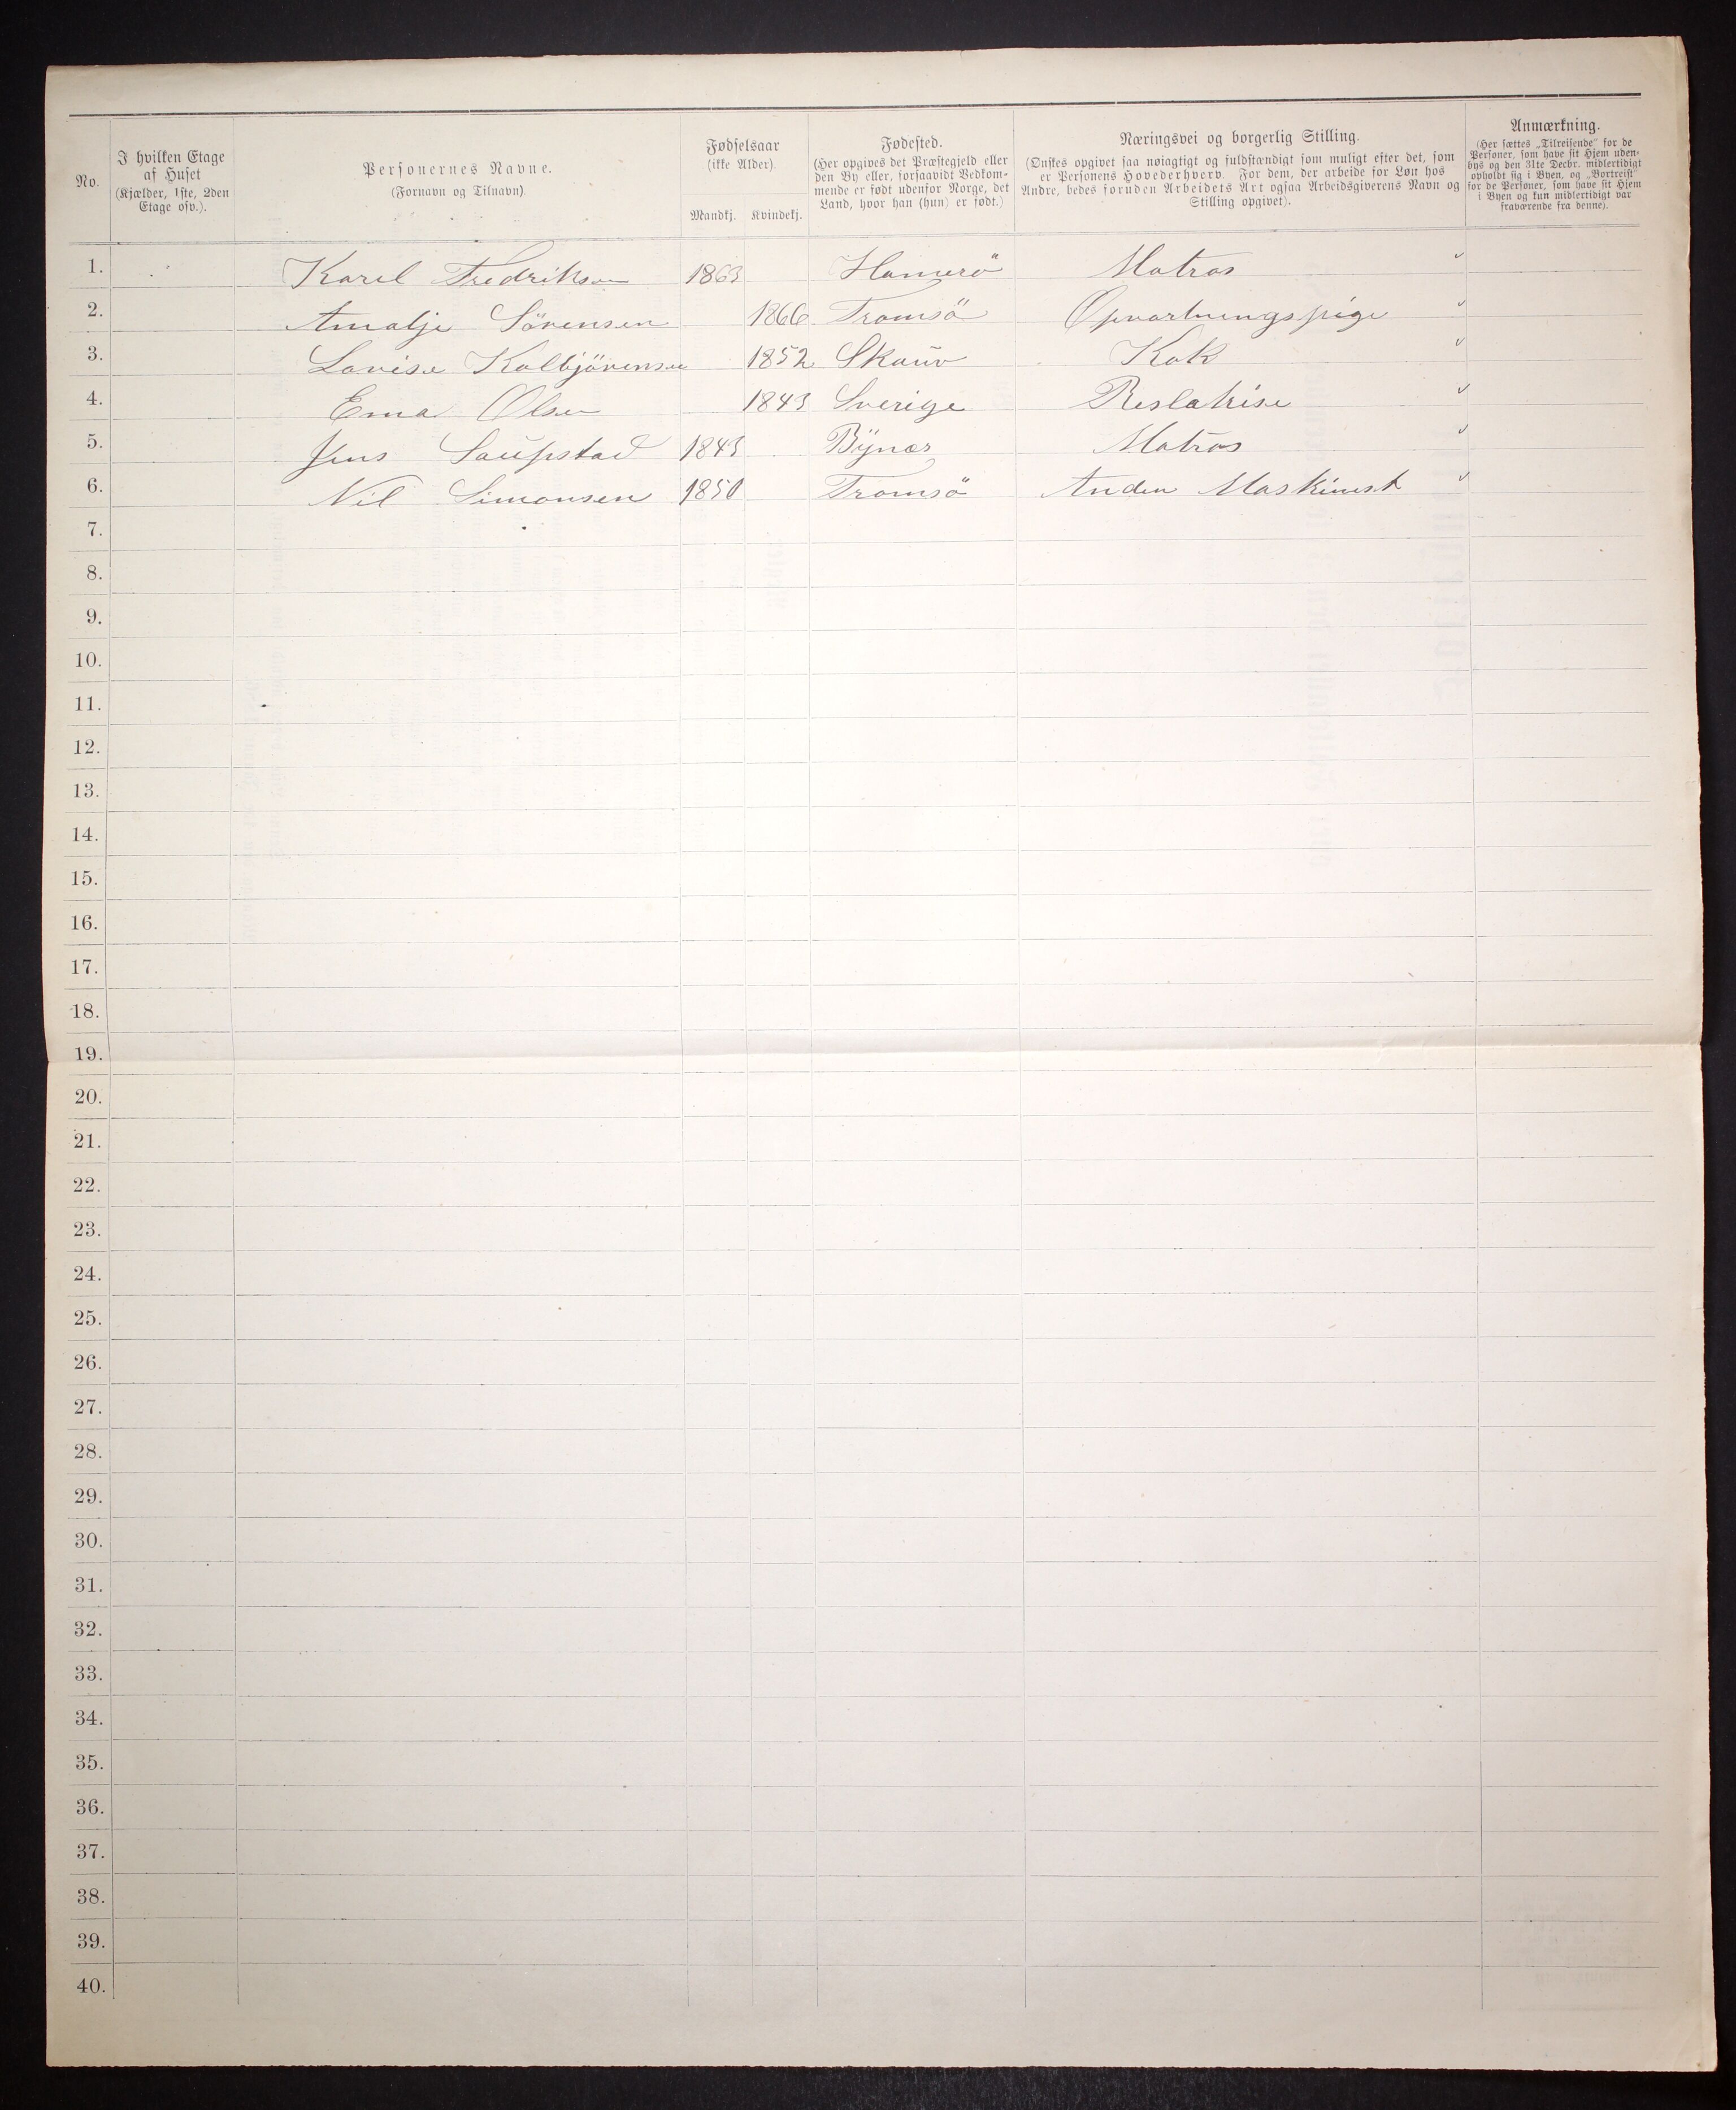 No.
I hvilken Etage af Huset (Kjælder, 1ste, 2den Etage osv.).
Personernes Navne. (Fornavn og Tilnavn).
Fødselsaar (ikke Alder). Mandkj. Kvindekj.
Fødested. (Her opgives det Præstegjeld eller den By eller, forsaavidt Vedkommende er født udenfor Norge, det Land, hvor han (hun) er født.)
Næringsvei og borgerlig Stilling. (Ønskes opgivet saa nøiagtigt og fuldstændigt som muligt efter det, som er Personens Hovederhverv. For dem, der arbeide for Løn hos Andre, bedes foruden Arbeidets Art ogsaa Arbeidsgiverens Navn og Stilling opgivet).
Anmærkning. (Her sættes „Tilreisende" for de Personer, som have sit Hjem udenbys og den 31te Decbr. midlertidigt opholdt sig i Byen, og „Bortreist" for de Personer, som have sit Hjem i Byen og kun midlertidigt var fraværende fra denne).
1. Karel Fredriksen 1863 Hamerö Matros
2. Amalje Sörensen 1866 Tromsö Opvartningspige
3. Lovise Kolbjörensen 1852 Skauv Kok
4. Erna Olsen 1843 Sverige
5. Jens Saupstad 1843 Bynes Matros
6. Nil Simonsen 1850 Tromsö Anden Maskinist
7.
8.
9.
10.
11.
12.
13.
14.
15.
16.
17.
18.
19.
20.
21.
22.
23.
24.
25.
26.
27.
28.
29.
30.
31.
32.
33.
34.
35.
36.
37.
38.
39.
40.